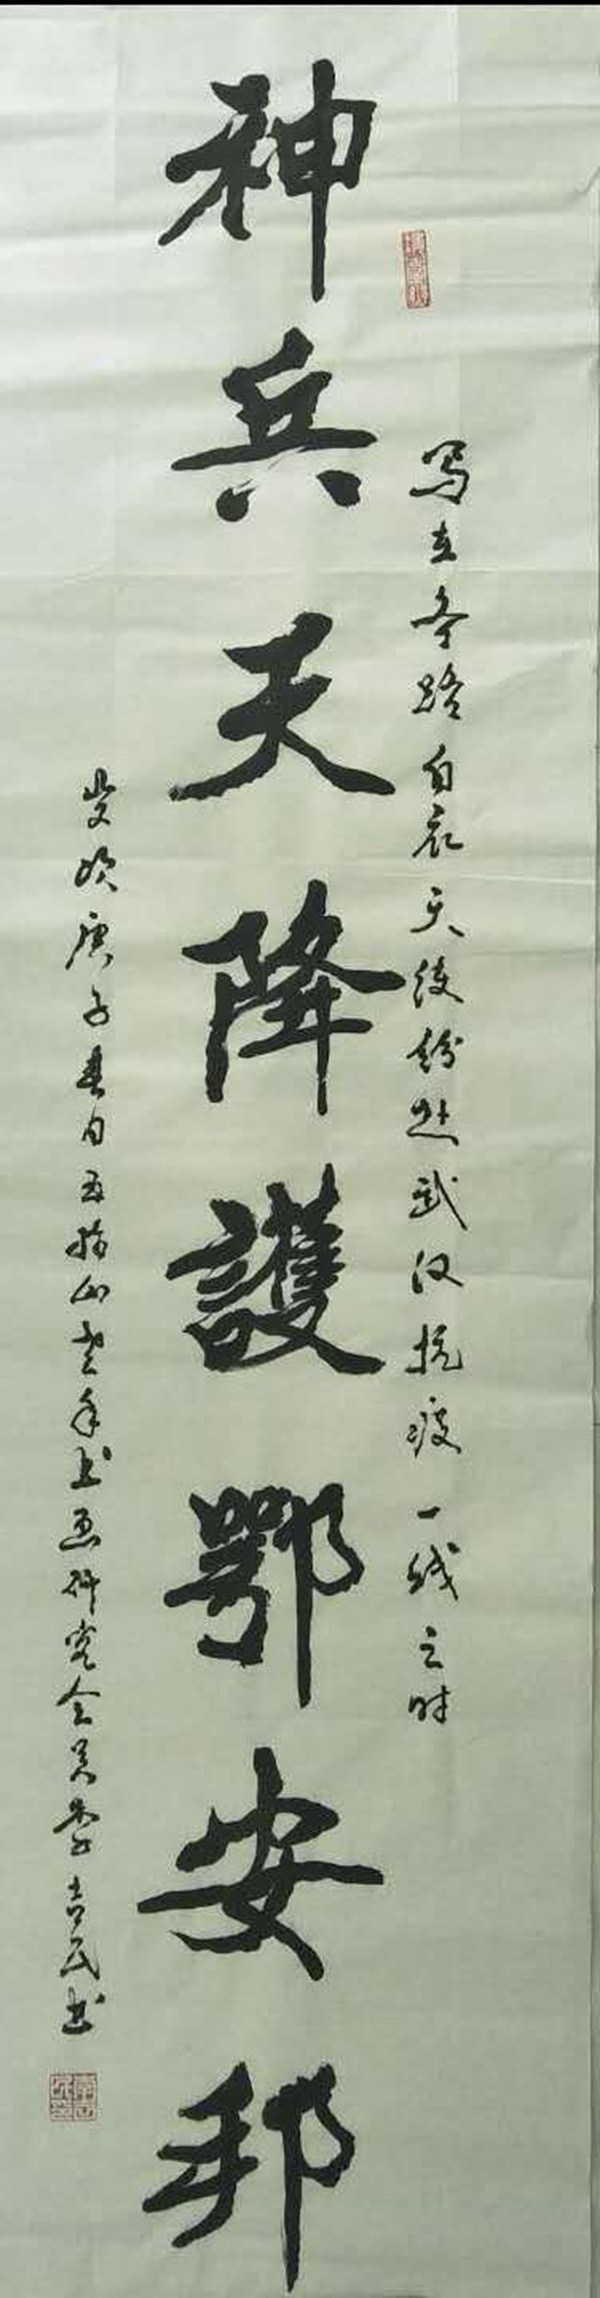 写在各路白衣天使纷赴武汉抗疫一线之时
神兵天降護鄂安邦
岁次庚子春日五指山老年书画研究会员李吉民书